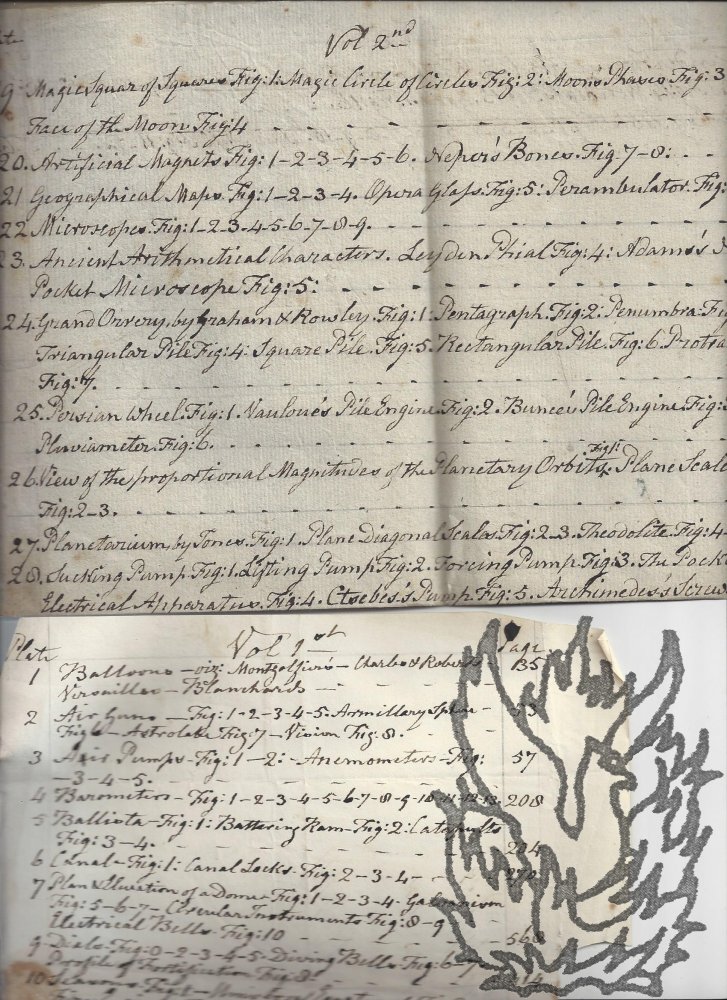 Vol 2nd
9 Magic Squar of Squares Fig: 1: Magic Circle of Circles Fig: 2: Moon's Phases Fig: 3
Face of the Moon Fig: 4
20. Artificial Magnets Fig: 1-2-3-4-5-6. Neper's Bones. Fig 7-8:
21 Geographical Maps Fig: 1-2-3-4. Opera Glass. Fig: 5: Perambulator. Fig:
22 Microscopes. Fig: 1-2-3-4-5-6-7-8-9.
23. Ancient Arithmetical Characters. Leyden Phial Fig: 4: Adams's
Pocket Microscope Fig: 5:
24. Grand Orrery, by Graham & Rowley. Fig: 1: Pentagraph. Fig: 2: Penumbra. Fig
Triangular Pile Fig: 4: Square Pile. Fig: 5. Rectangular Pile. Fig: 6. Protra
Fig: 7.
25. Persian Wheel. Fig: 1. Vauloue's Pile Engine. Fig: 2. Bunce's Pile Engine. Fig:
Pluviameter. Fig: 6.
26. View of the proportional Magnitudes of the Planetary Orbits. Fig 1: Plane Scale
Fig: 2-3.
27. Planetarium, by Jones. Fig: 1. Plane Diagonal Scales. Fig: 2-3. Theodolite. Fig: 4-
28. Sucking Pump. Fig: 1. Lifting Pump Fig: 2. Forcing Pump. Fig: 3. The Pock
Electrical Apparatus. Fig: 4. Ctsebes's Pump. Fig: 5. Archimedes's Screw
Plate Vol 1st Page
1 Balloons - viz: Montgolfier's - Charles & Roberts - 135
Versailles - Blanchards
2 Air Guns - Fig: 1-2-3-4-5. Armillary Sphere - 53
Fig 6 - Astrolabe Fig: 7 - Vision Fig: 8.
3 Air Pumps - Fig: 1-2: - Anemometers - Fig: 57
-3-4-5.
4 Barometers - Fig: 1-2-3-4-5-6-7-8-9-10-11-12-13- 208
5 Ballista - Fig: 1: Battering Ram - Fig: 2: Catapults
Fig: 3-4. 204
6 Canal - Fig: 1: Canal Locks - Fig: 2-3-4- 270
7 Plan & Elevation of a Dome - Fig: 1-2-3-4- Galvanism
Fig: 5-6-7- Circular Instruments Fig: 8-9
Electrical Bells - Fig: 10 568
9 Dials - Fig: 0-2-3-4-5- Diving Bells - Fig: 6-7
Profile of Fortification Fig: 8:
10